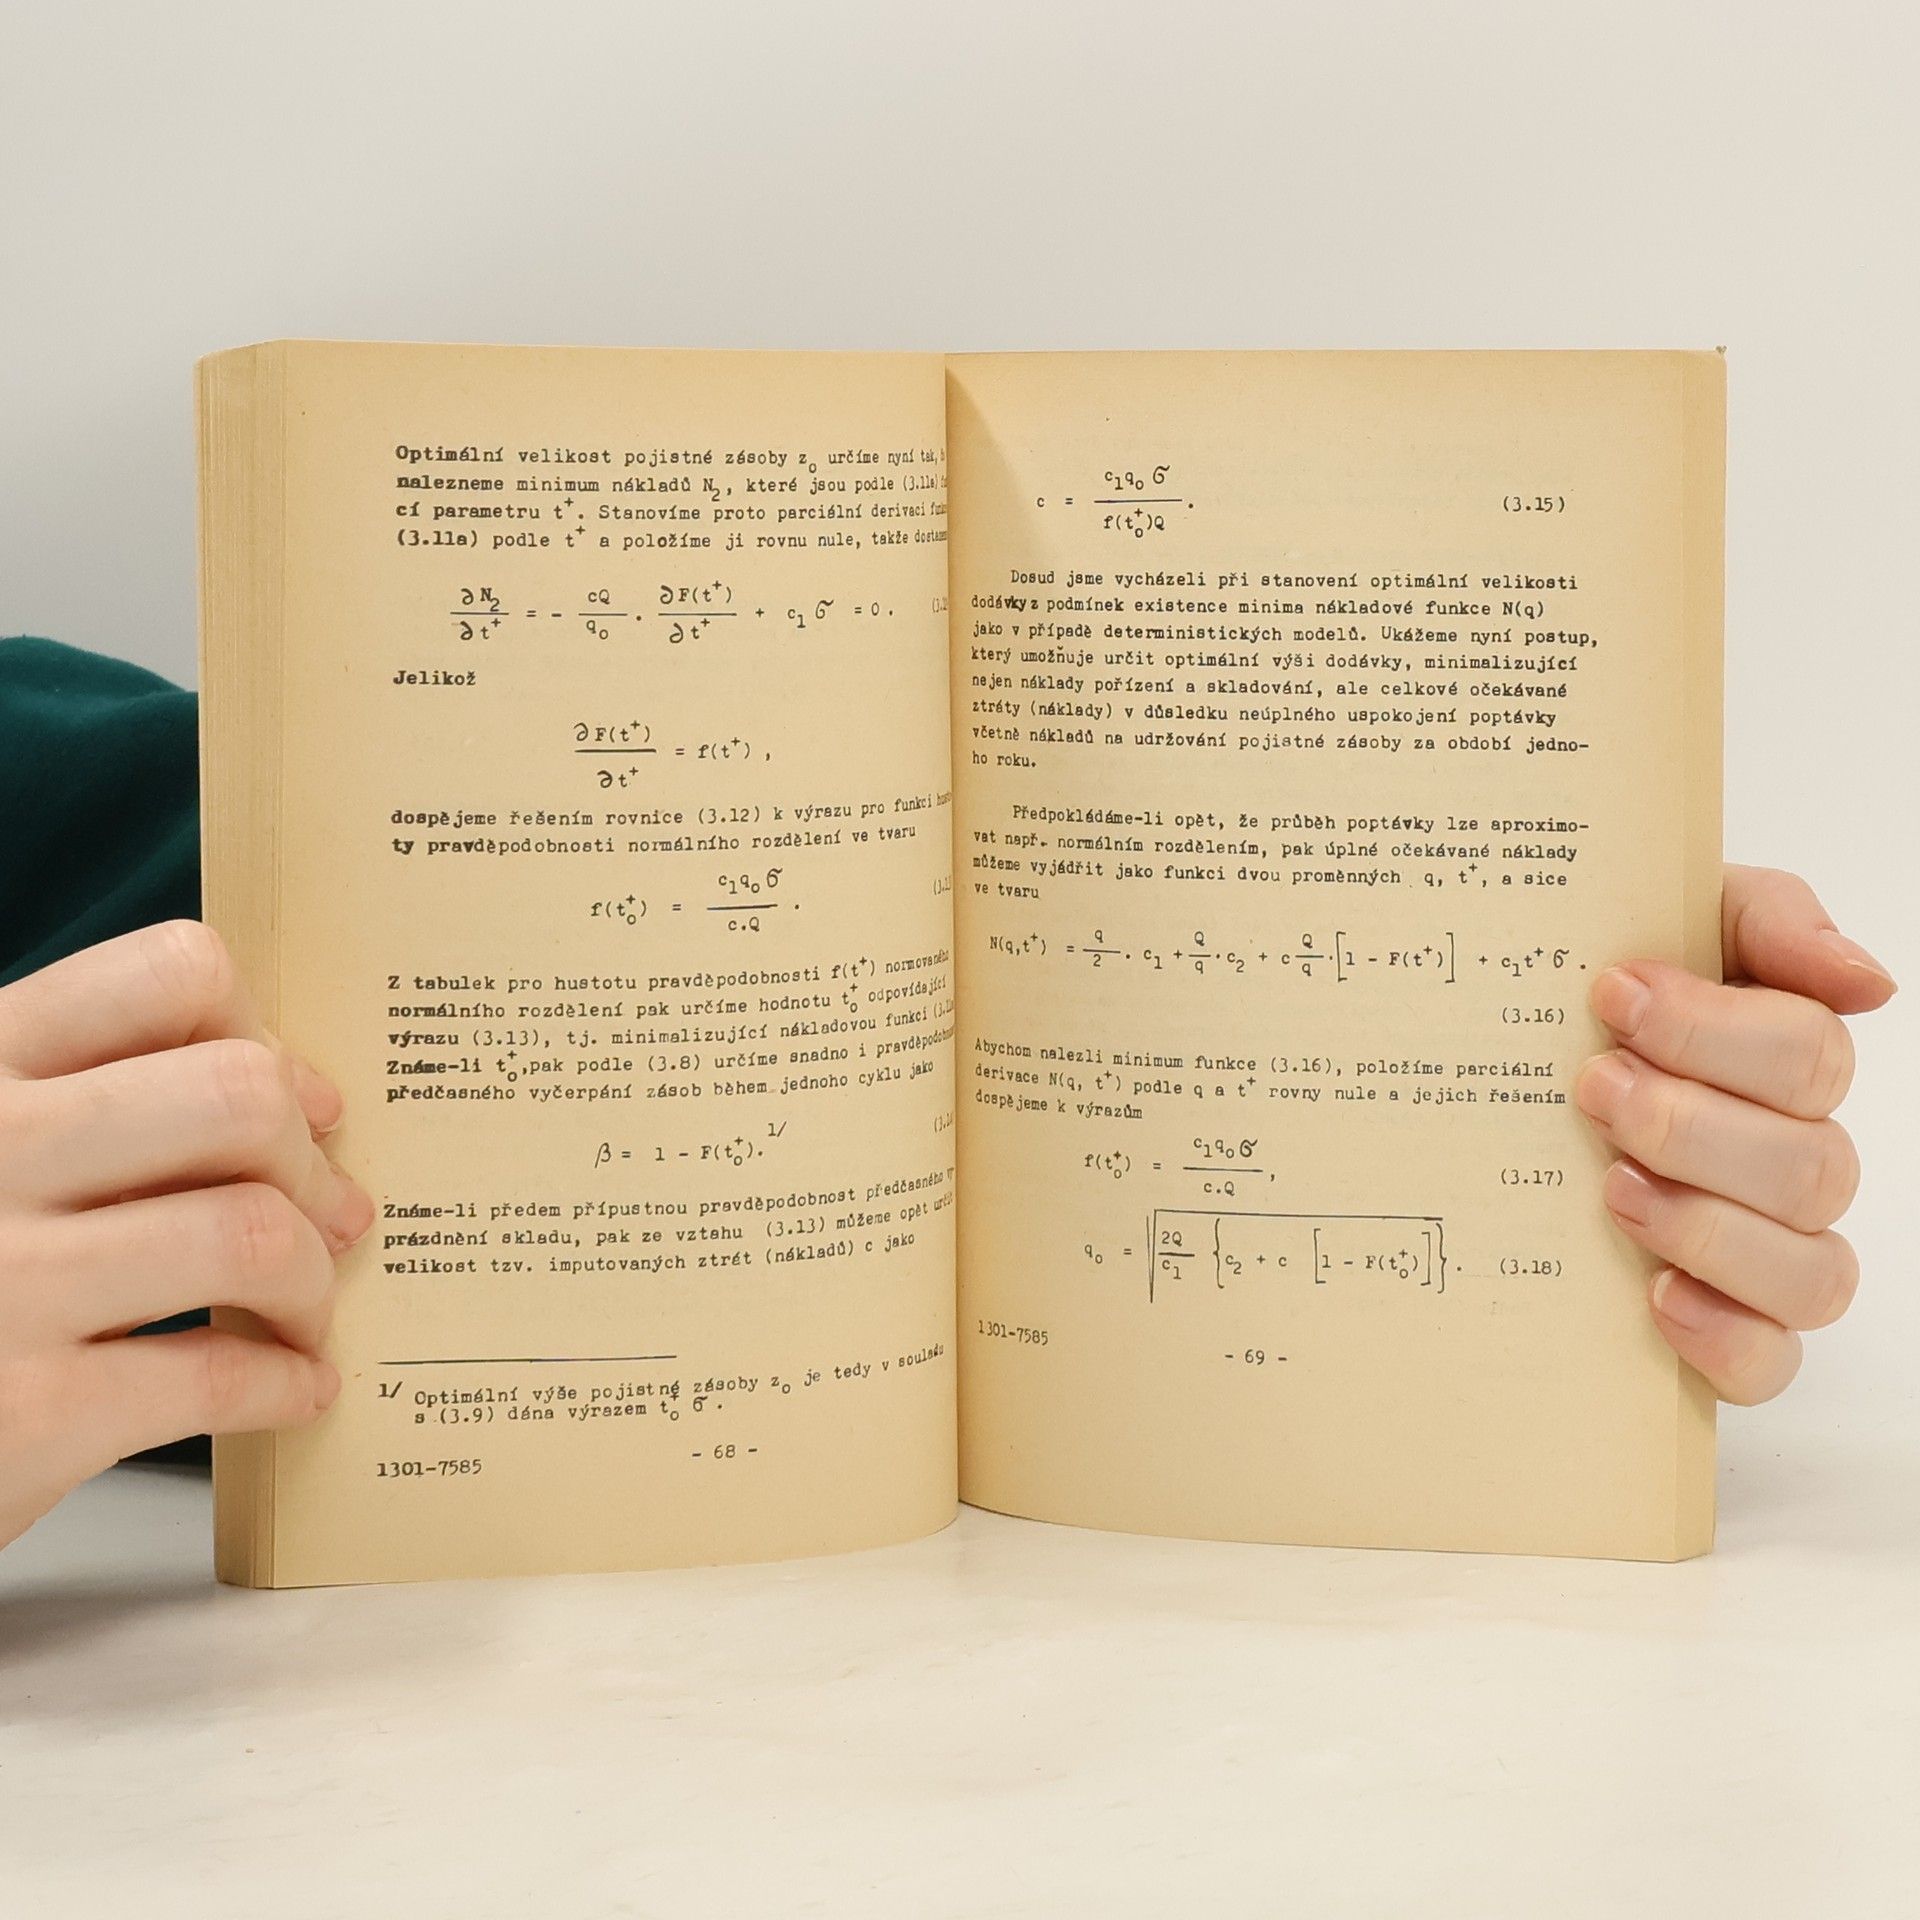 Optimální velikost pojistné zásoby z_o určíme nyní tak,
nalezneme minimum nákladů N_2, které jsou podle (3.11a)
cí parametru t^+. Stanovíme proto parciální derivaci
(3.11a) podle t^+ a položíme ji rovnu nule, takže
∂N_2/∂t^+ = - cQ/q_o . ∂F(t^+)/∂t^+ + c_1 σ = 0 .
Jelikož
∂F(t^+)/∂t^+ = f(t^+) ,
dospějeme řešením rovnice (3.12) k výrazu pro funkci
ty pravděpodobnosti normálního rozdělení ve tvaru
f(t_o^+) = c_1 q_o σ / c.Q .
Z tabulek pro hustotu pravděpodobnosti f(t^+) normovaného
normálního rozdělení pak určíme hodnotu t_o^+ odpovídající
výrazu (3.13), tj. minimalizující nákladovou funkci
Známe-li t_o^+,pak podle (3.8) určíme snadno i
předčasného vyčerpání zásob během jednoho cyklu jako
β = 1 - F(t_o^+). 1/
Známe-li předem přípustnou pravděpodobnost předčasného
prázdnění skladu, pak ze vztahu (3.13) můžeme opět
velikost tzv. imputovaných ztrát (nákladů) c jako
1/ Optimální výše pojistné zásoby z_o je tedy v souladu
s (3.9) dána výrazem t_o^+ σ .
- 68 -
1301-7585
c = c_1 q_o σ / f(t_o^+)Q . (3.15)
Dosud jsme vycházeli při stanovení optimální velikosti
dodávky z podmínek existence minima nákladové funkce N(q)
jako v případě deterministických modelů. Ukážeme nyní postup,
který umožňuje určit optimální výši dodávky, minimalizující
nejen náklady pořízení a skladování, ale celkové očekávané
ztráty (náklady) v důsledku neúplného uspokojení poptávky
včetně nákladů na udržování pojistné zásoby za období jedno-
ho roku.
Předpokládáme-li opět, že průběh poptávky lze aproximo-
vat např. normálním rozdělením, pak úplné očekávané náklady
můžeme vyjádřit jako funkci dvou proměnných q, t^+, a sice
ve tvaru
N(q,t^+) = q/2 . c_1 + Q/q . c_2 + c Q/q . [1 - F(t^+)] + c_1 t^+ σ .
(3.16)
Abychom nalezli minimum funkce (3.16), položíme parciální
derivace N(q, t^+) podle q a t^+ rovny nule a jejich řešením
dospějeme k výrazům
f(t_o^+) = c_1 q_o σ / c.Q , (3.17)
q_o = √(2Q/c_1 {c_2 + c [1 - F(t_o^+)]}) . (3.18)
1301-7585
- 69 -